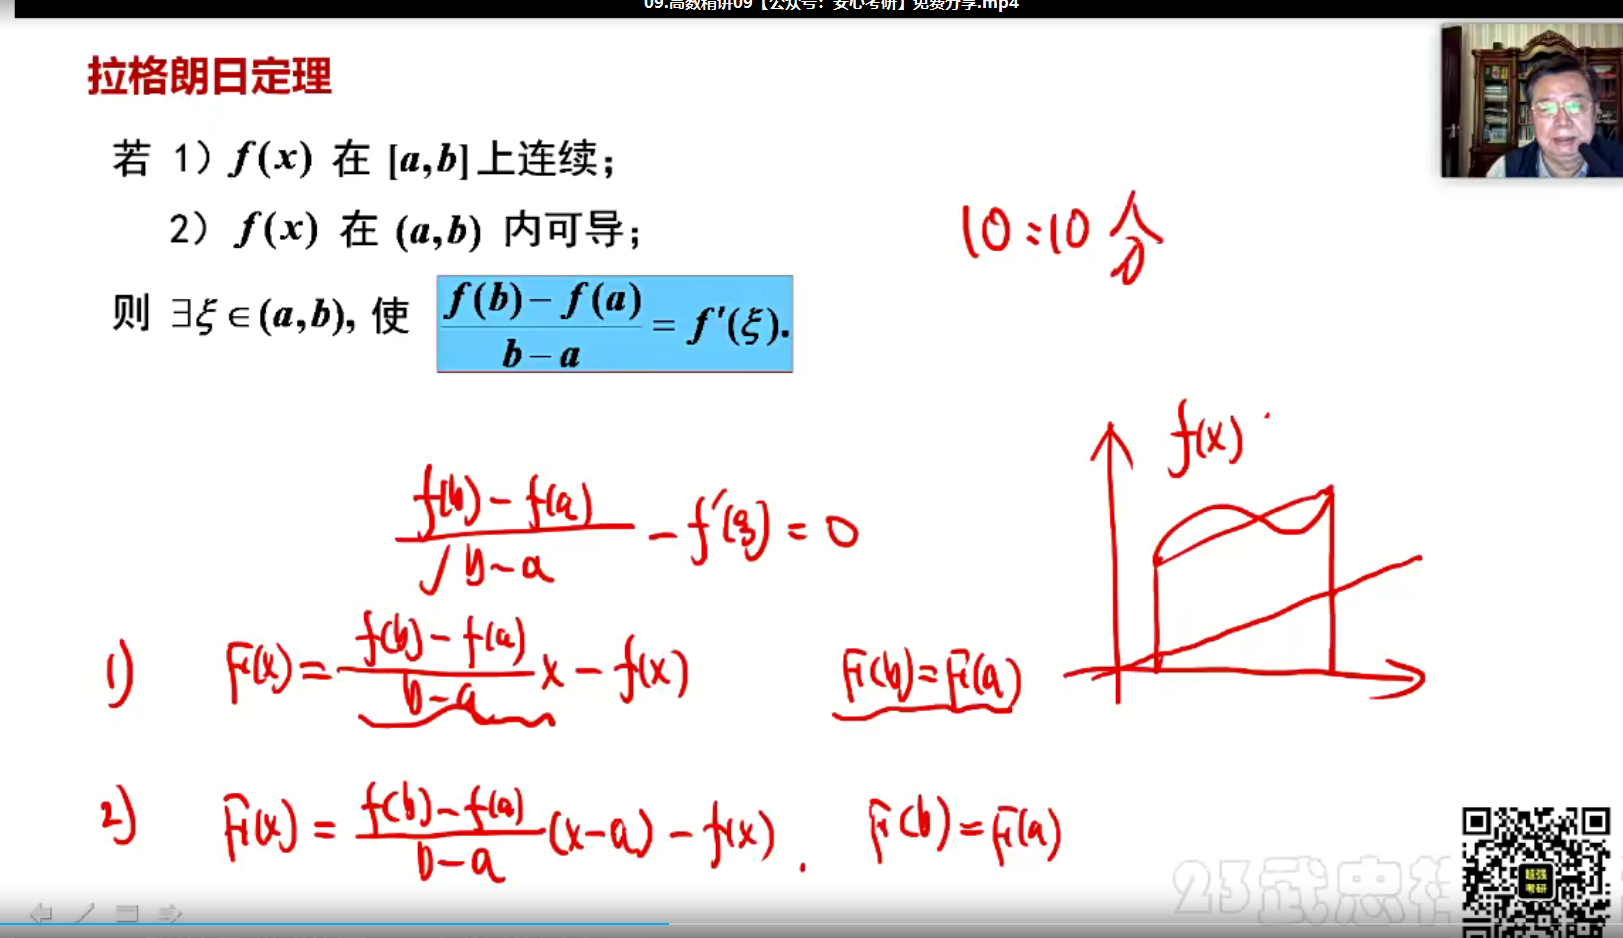 09.高数精讲09【公众号：安心考研】免费分享.mp4
拉格朗日定理
若 1) f(x) 在 [a,b]上连续;
2) f(x) 在 (a,b) 内可导;
则 ∃ξ∈(a,b), 使 (f(b)−f(a))/(b−a) = f′(ξ).
10:10 分
f(x)
(f(b)−f(a))/(b−a) − f′(ξ) = 0
1) F(x) = (f(b)−f(a))/(b−a) x − f(x) F(b)=F(a)
2) F(x) = (f(b)−f(a))/(b−a) (x−a) − f(x). F(b)=F(a)
23武忠祥
超强
考研